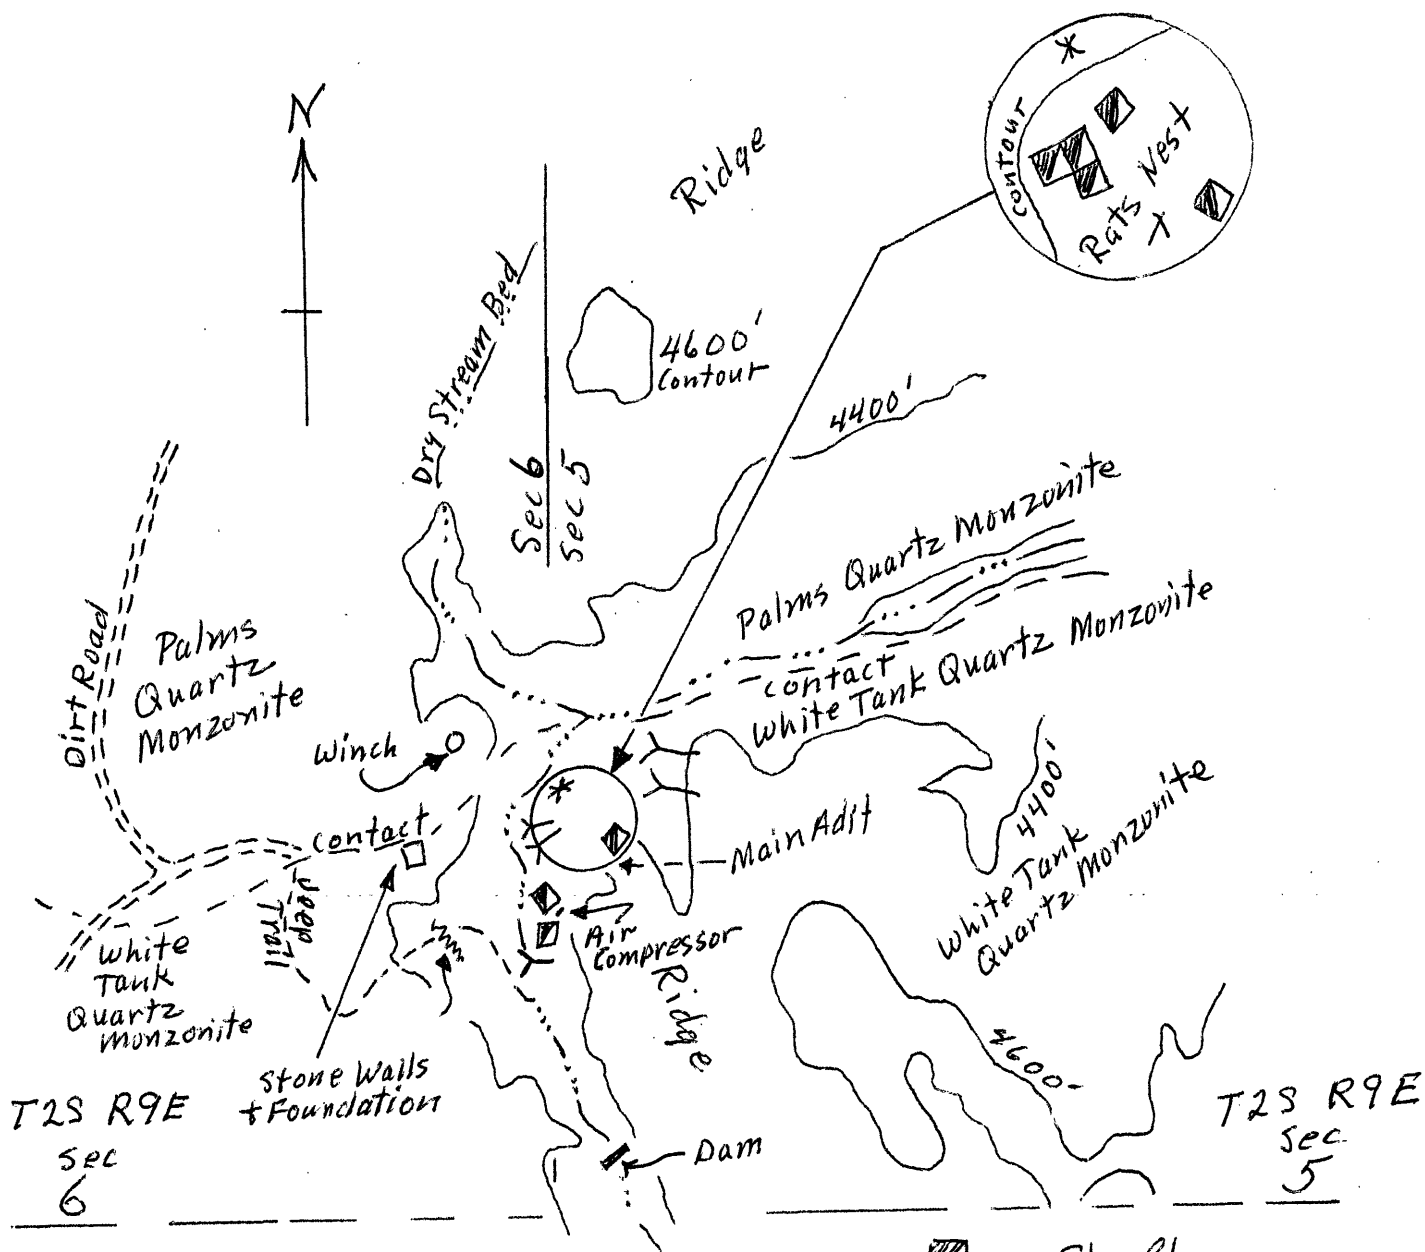 N
Ridge
Contour
Rats Nest
Dry Stream Bed
4600'
Contour
4400'
Sec 6
Sec 5
Palms Quartz Monzonite
Contact
White Tank Quartz Monzonite
Dirt Road
Palms
Quartz
Monzonite
Winch
Contact
Main Adit
4400'
White Tank
Quartz Monzonite
Jeep
Trail
White
Tank
Quartz
Monzonite
Air
Compressor
Ridge
4600'
Stone Walls
+ Foundation
T2S R9E
Sec
6
Dam
T2S R9E
Sec
5